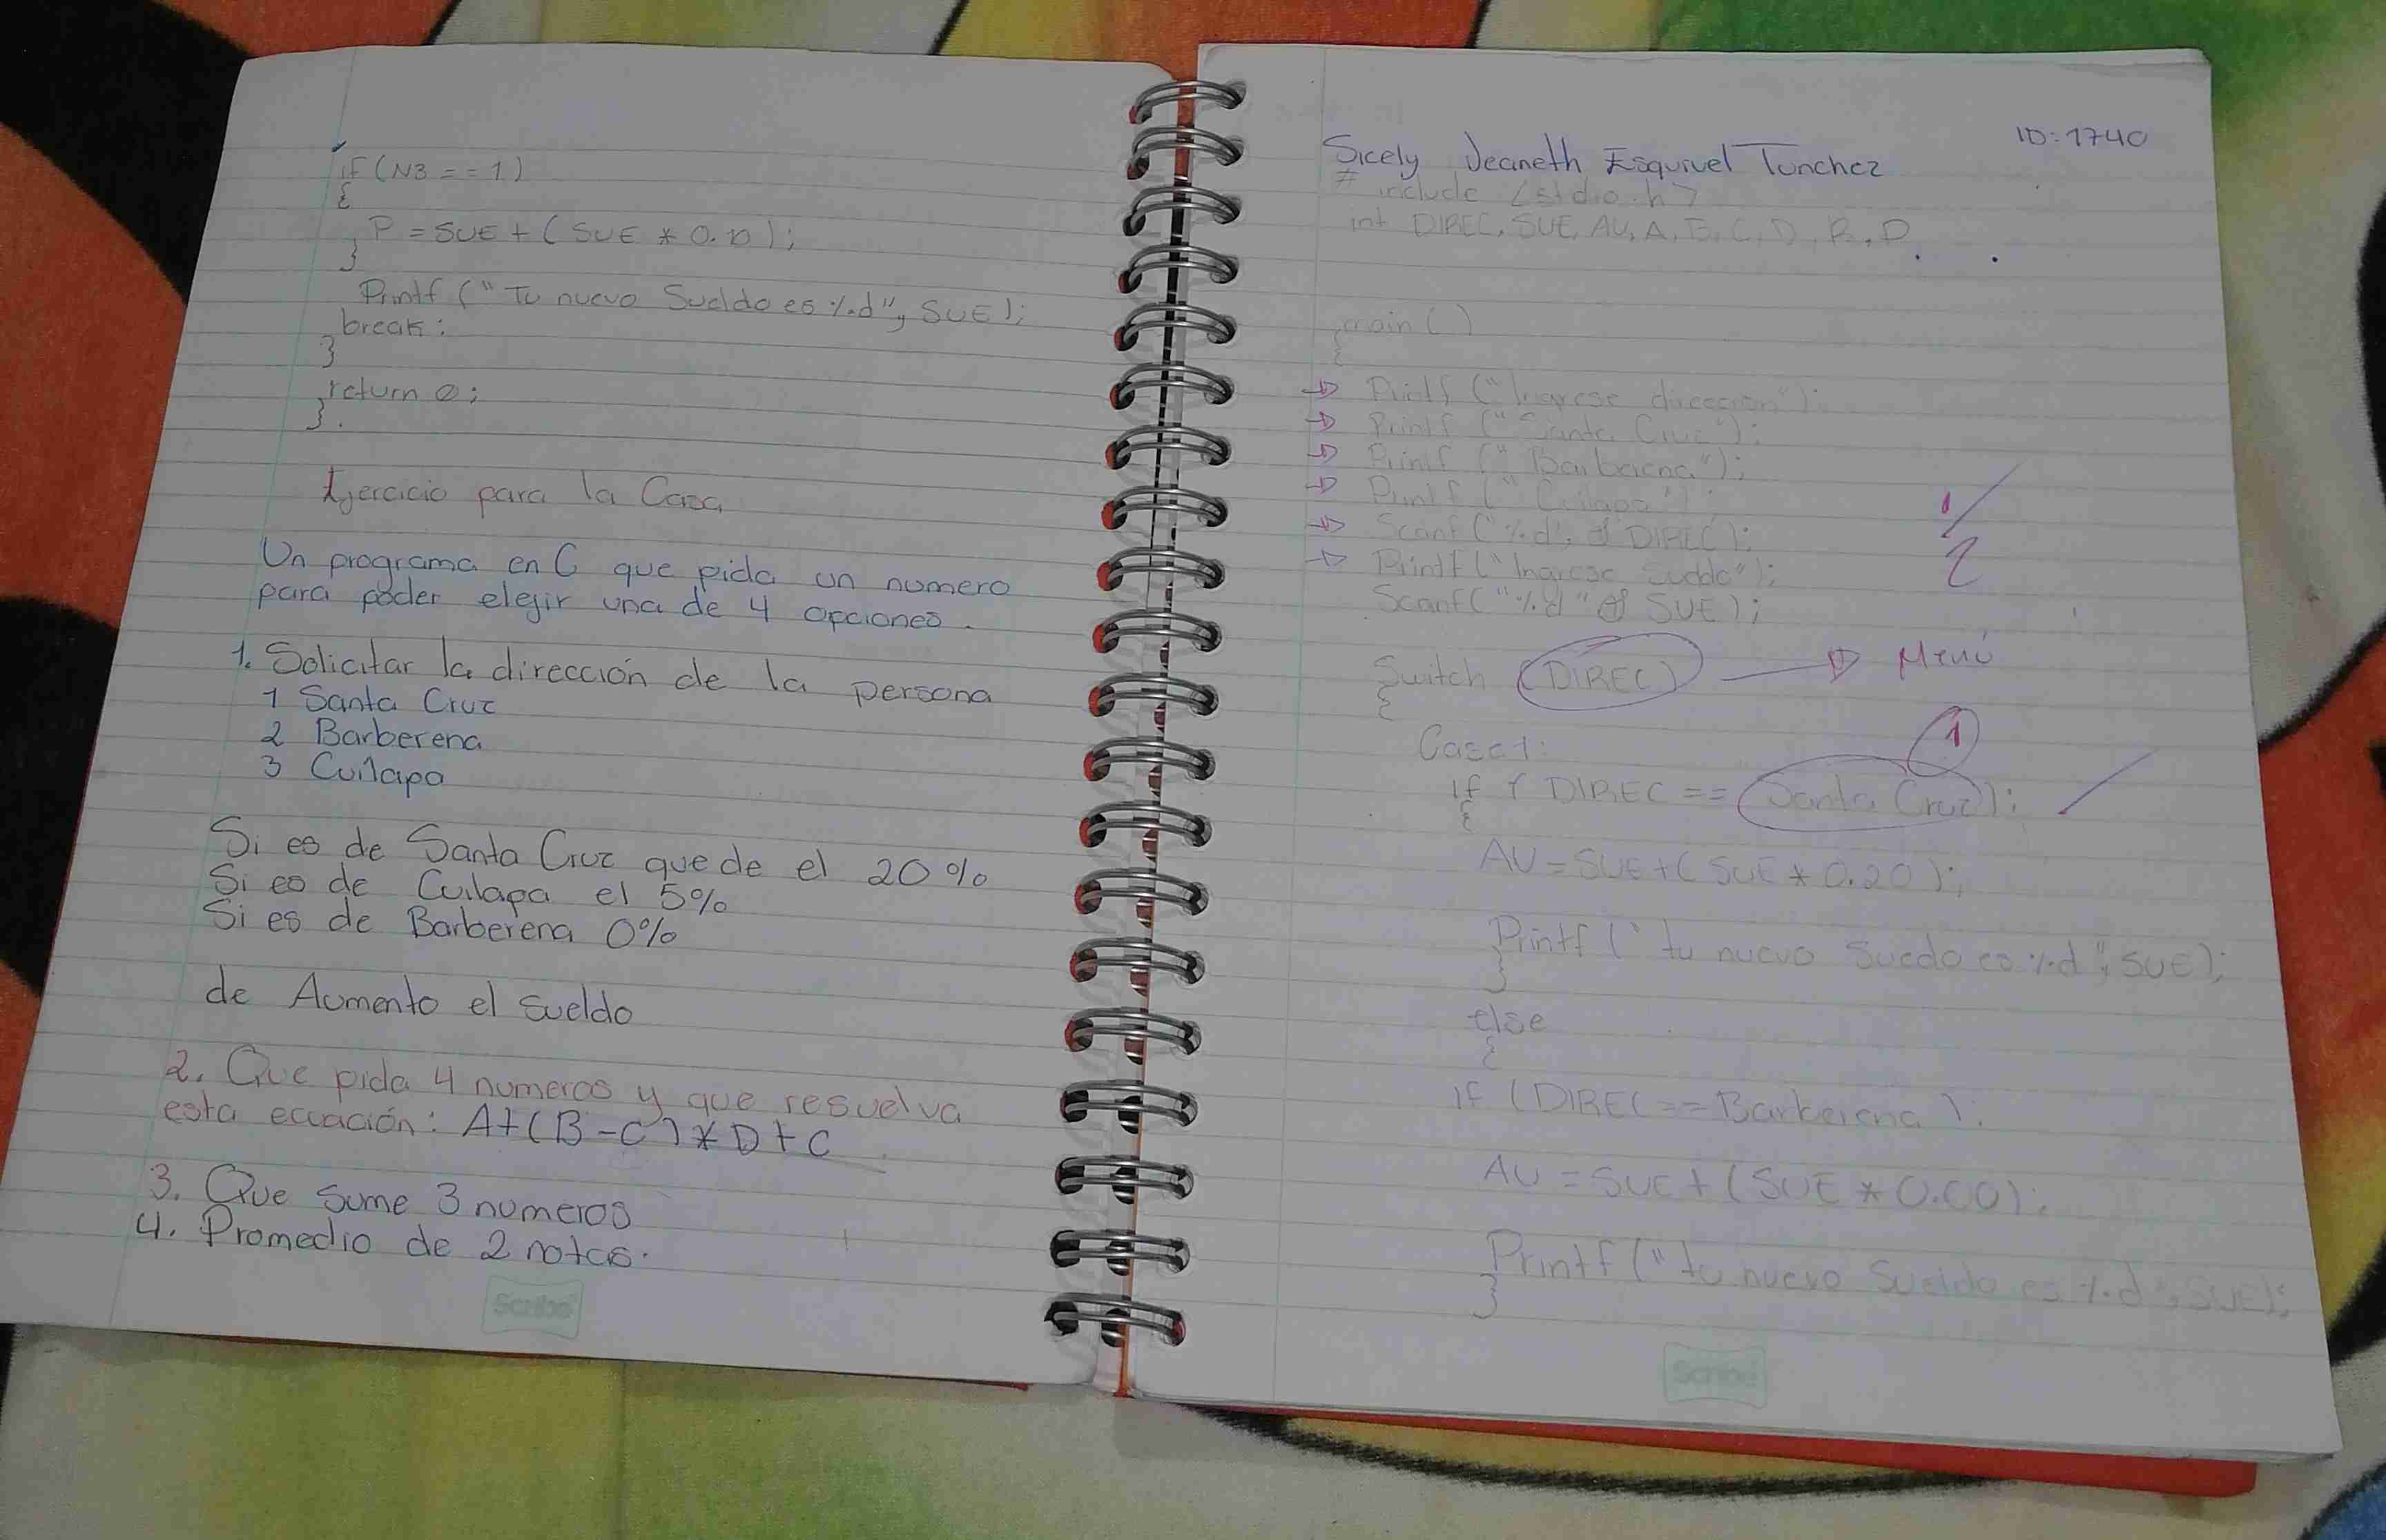 if (N3 == 1)
{
P = SUE + ( SUE * 0.10 );
}
Printf (" Tu nuevo Sueldo es %d", SUE );
break;
}
return 0;
}.
Ejercicio para la Casa
Un programa en C que pida un numero
para poder elejir una de 4 opciones.
1. Solicitar la dirección de la persona
1 Santa Cruz
2 Barberena
3 Cuilapa
Si es de Santa Cruz que de el 20%
Si es de Cuilapa el 5%
Si es de Barberena 0%
de Aumento el sueldo
2. Que pida 4 numeros y que resuelva
esta ecuación: A+(B-C)*D+C
3. Que sume 3 numeros
4. Promedio de 2 notas.
Scribe
ID: 1740
Sicely Jeaneth Esquivel Tunchez
# include <stdio.h>
int DIREC, SUE, AU, A, B, C, D, R, D
main ( )
{
Printf ("Ingrese direccion");
Printf (" Santa Cruz");
Printf (" Barberena");
Printf (" Cuilapa");
Scanf ("%d", & DIREC);
Printf ("Ingrese Sueldo");
Scanf ("%d" & SUE );
1/2
Switch (DIREC) → Menú
{
1
Case 1:
if ( DIREC == Santa Cruz);
{
AU = SUE + ( SUE * 0.20 );
Printf (" tu nuevo Suedo es %d", SUE);
}
else
{
if (DIREC == Barberena );
AU = SUE + (SUE * 0.00);
Printf (" tu nuevo Sueldo es %d", SUE);
}
Scribe